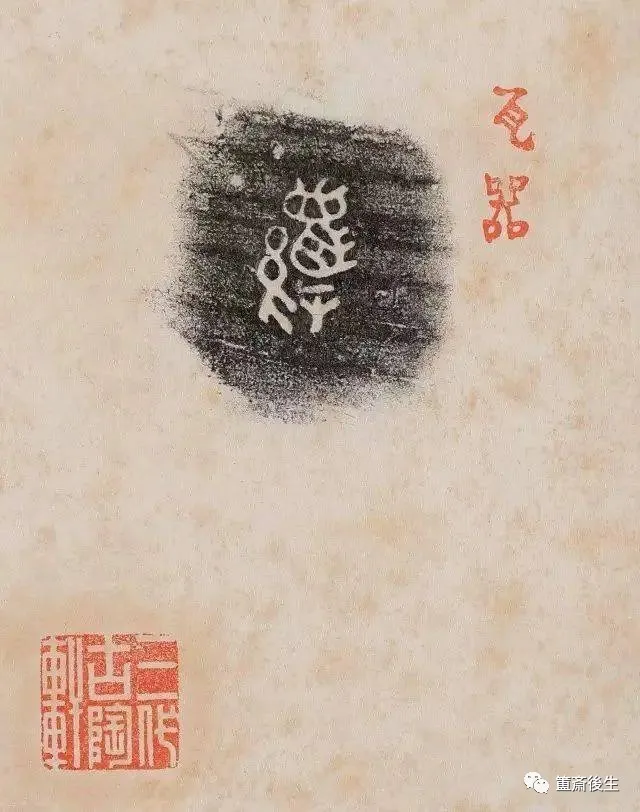 瓦器
三代古陶軒
簠斋後生